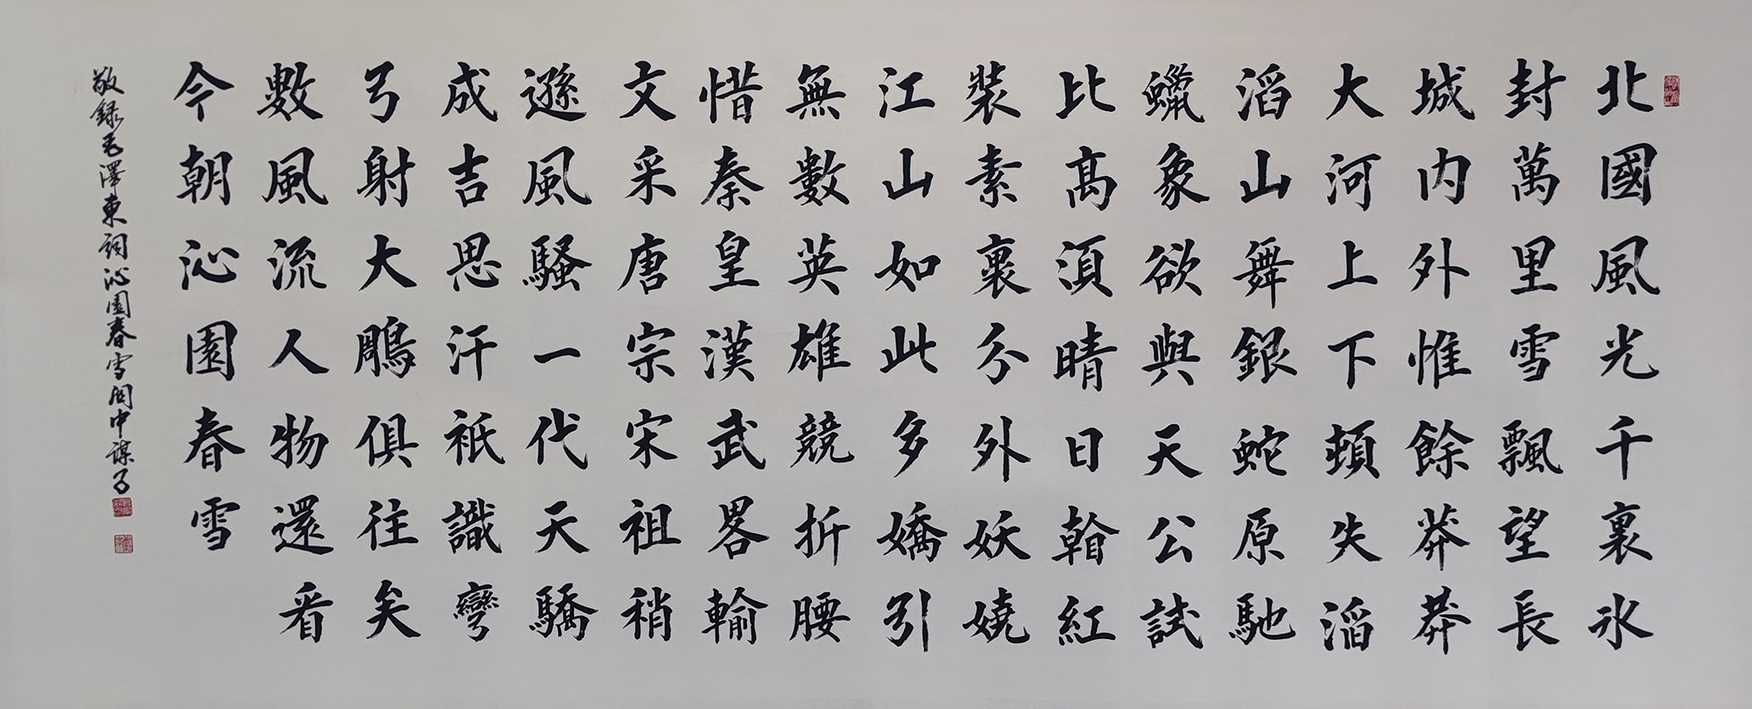 北國風光千裏氷
封萬里雪飄望長
城内外惟餘莽莽
大河上下頓失滔
滔山舞銀蛇原馳
蠟象欲與天公試
比髙湏晴日看紅
裝素裹分外妖嬈
江山如此多嬌引
無數英雄競折腰
惜秦皇漢武畧輸
文采唐宗宋祖稍
遜風騷一代天驕
成吉思汗衹識彎
弓射大鵰俱往矣
數風流人物還看
今朝沁園春雪
敬録毛澤東詞沁園春雪